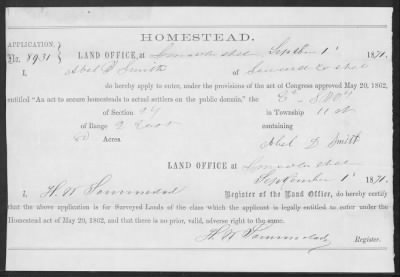 HOMESTEAD.
APPLICATION.
No. 8931
LAND OFFICE, at Lincoln Neb Septbr 1st 1871.
I, Abel D Smith of Seward Co Neb
do hereby apply to enter, under the provisions of the act of Congress approved May 20, 1862,
entitled "An act to secure homesteads to actual settlers on the public domain," the E½ SW¼
of Section in Township 11 N
of Range 2 East containing
80 Acres. Abel D Smith
LAND OFFICE at Lincoln Neb
September 1st 1871.
I, H. W. Sommerlad Register of the Land Office, do hereby certify
that the above application is for Surveyed Lands of the class which the applicant is legally entitled to enter under the
Homestead act of May 20, 1862, and that there is no prior, valid, adverse right to the same.
H. W. Sommerlad Register.